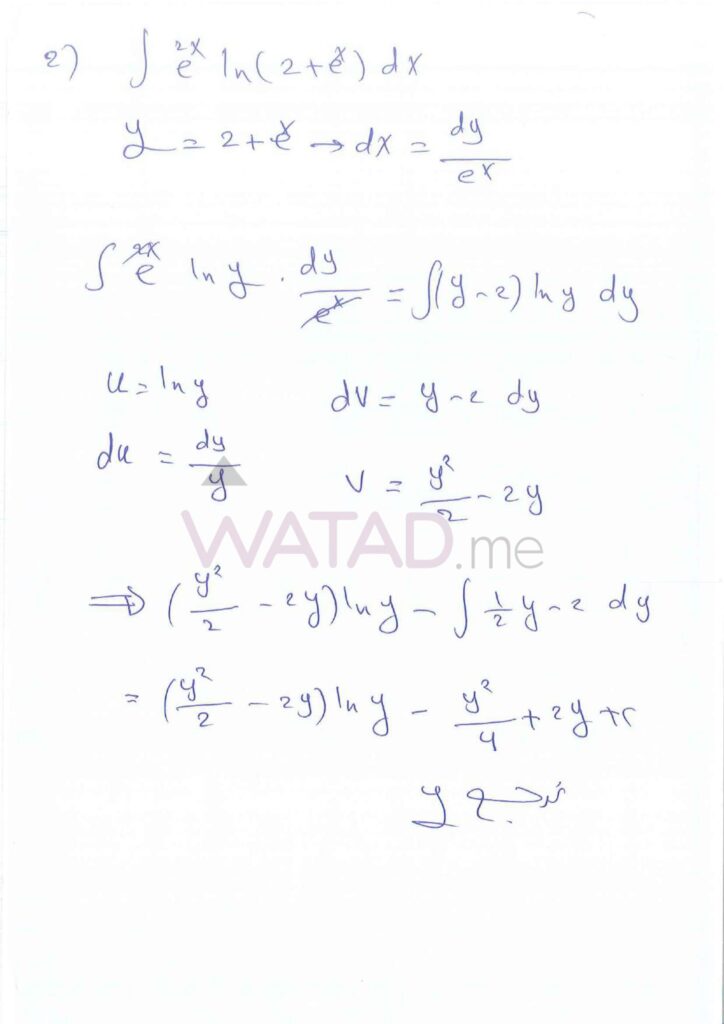 2) ∫ e^{2x} ln(2+e^x) dx
y = 2+e^x → dx = dy/e^x
∫ e^{2x} ln y . dy/e^x = ∫(y-2) ln y dy
u = ln y    dv = y-2 dy
du = dy/y    v = y²/2 - 2y
WATAD.me
⇒ (y²/2 - 2y) ln y - ∫ 1/2 y-2 dy
= (y²/2 - 2y) ln y - y²/4 + 2y + c
نرجع y